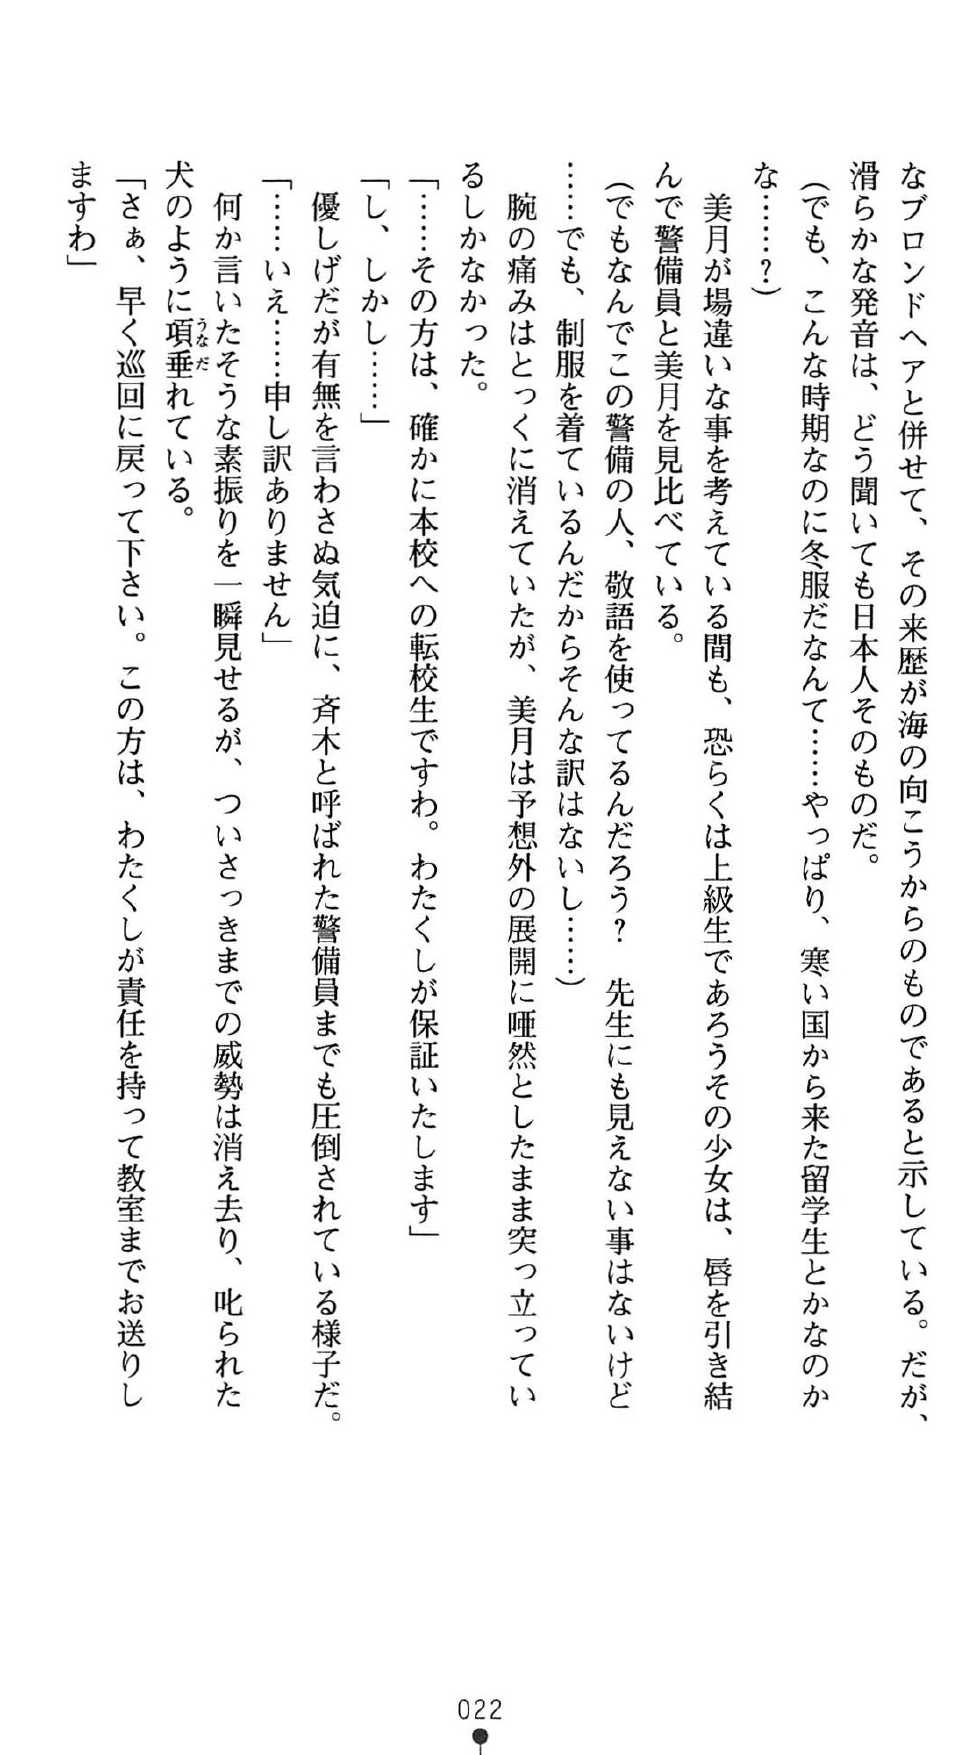 なブロンドヘアと併せて、その来歴が海の向こうからのものであると示している。だが、
滑らかな発音は、どう聞いても日本人そのものだ。
（でも、こんな時期なのに冬服だなんて……やっぱり、寒い国から来た留学生とかなのか
な……？）
　美月が場違いな事を考えている間も、恐らくは上級生であろうその少女は、唇を引き結
んで警備員と美月を見比べている。
（でもなんでこの警備の人、敬語を使ってるんだろう？　先生にも見えない事はないけど
……でも、制服を着ているんだからそんな訳はないし……）
　腕の痛みはとっくに消えていたが、美月は予想外の展開に唖然としたまま突っ立ってい
るしかなかった。
「……その方は、確かに本校への転校生ですわ。わたくしが保証いたします」
「し、しかし……」
　優しげだが有無を言わさぬ気迫に、斉木と呼ばれた警備員までも圧倒されている様子だ。
「……いえ……申し訳ありません」
　何か言いたそうな素振りを一瞬見せるが、ついさっきまでの威勢は消え去り、叱られた
犬のように項垂れている。
うなだ
「さぁ、早く巡回に戻って下さい。この方は、わたくしが責任を持って教室までお送りし
ますわ」
022